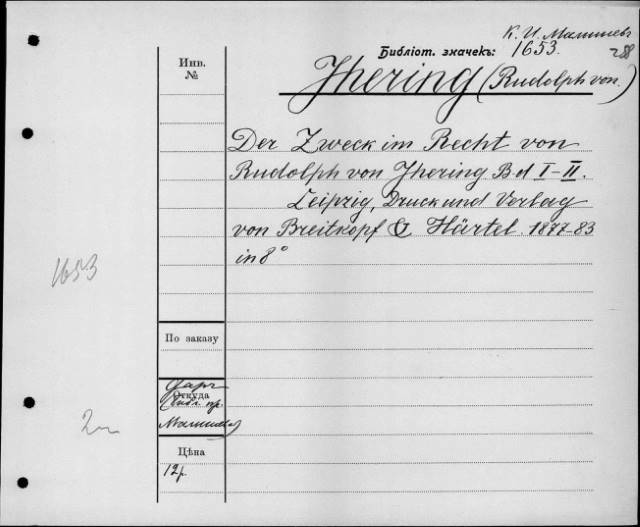 К. И. Малышевъ
Библіот. значекъ: 1653.
288
Инв.
№
Jhering (Rudolph von)
Der Zweck im Recht von
Rudolph von Jhering Bd I-II.
Leipzig, Druck und Verlag
von Breitkopf & Härtel. 1877-83
in 8°
1653
По заказу
Откуда
Библ. пр.
Малышева
2
Цѣна
12 р.